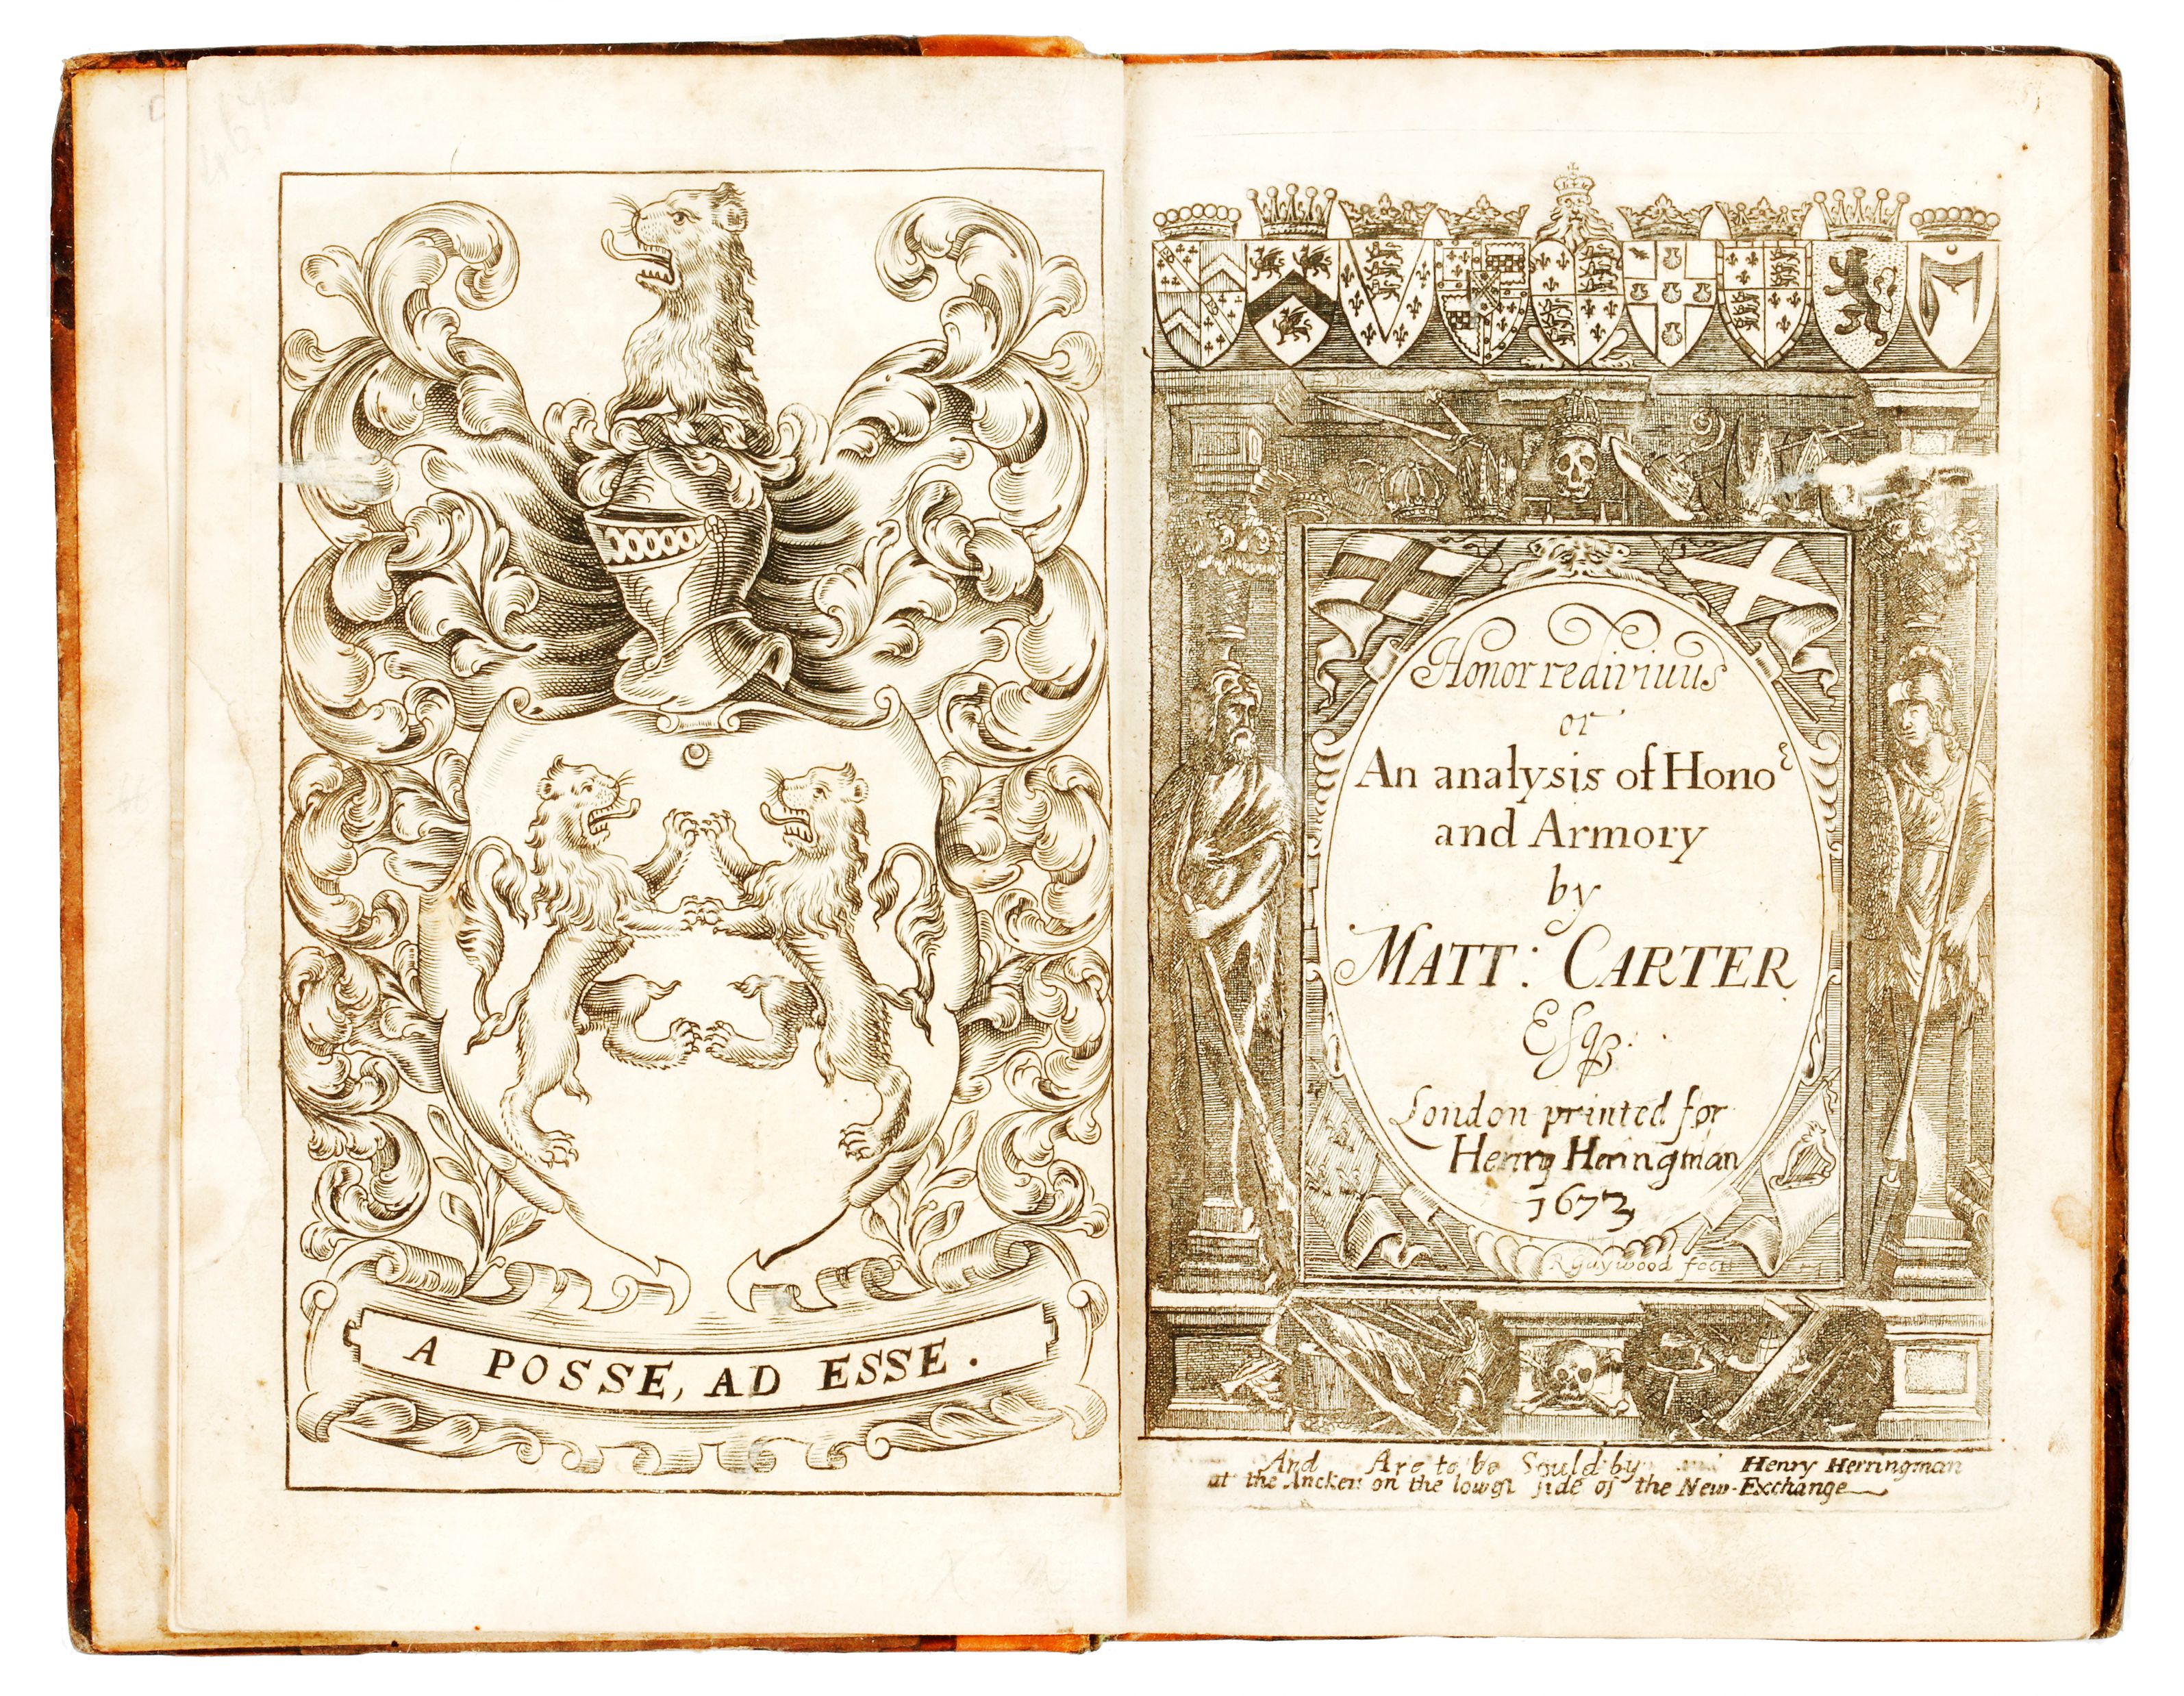 A POSSE, AD ESSE.
Honor redivivus
or
An analysis of Hono
and Armory
by
MATT: CARTER
Esqr
London printed for
Henry Herringman
1673
R Gaywood fecit
And Are to be Sould by Henry Herringman
at the Ancker on the lower side of the New-Exchange